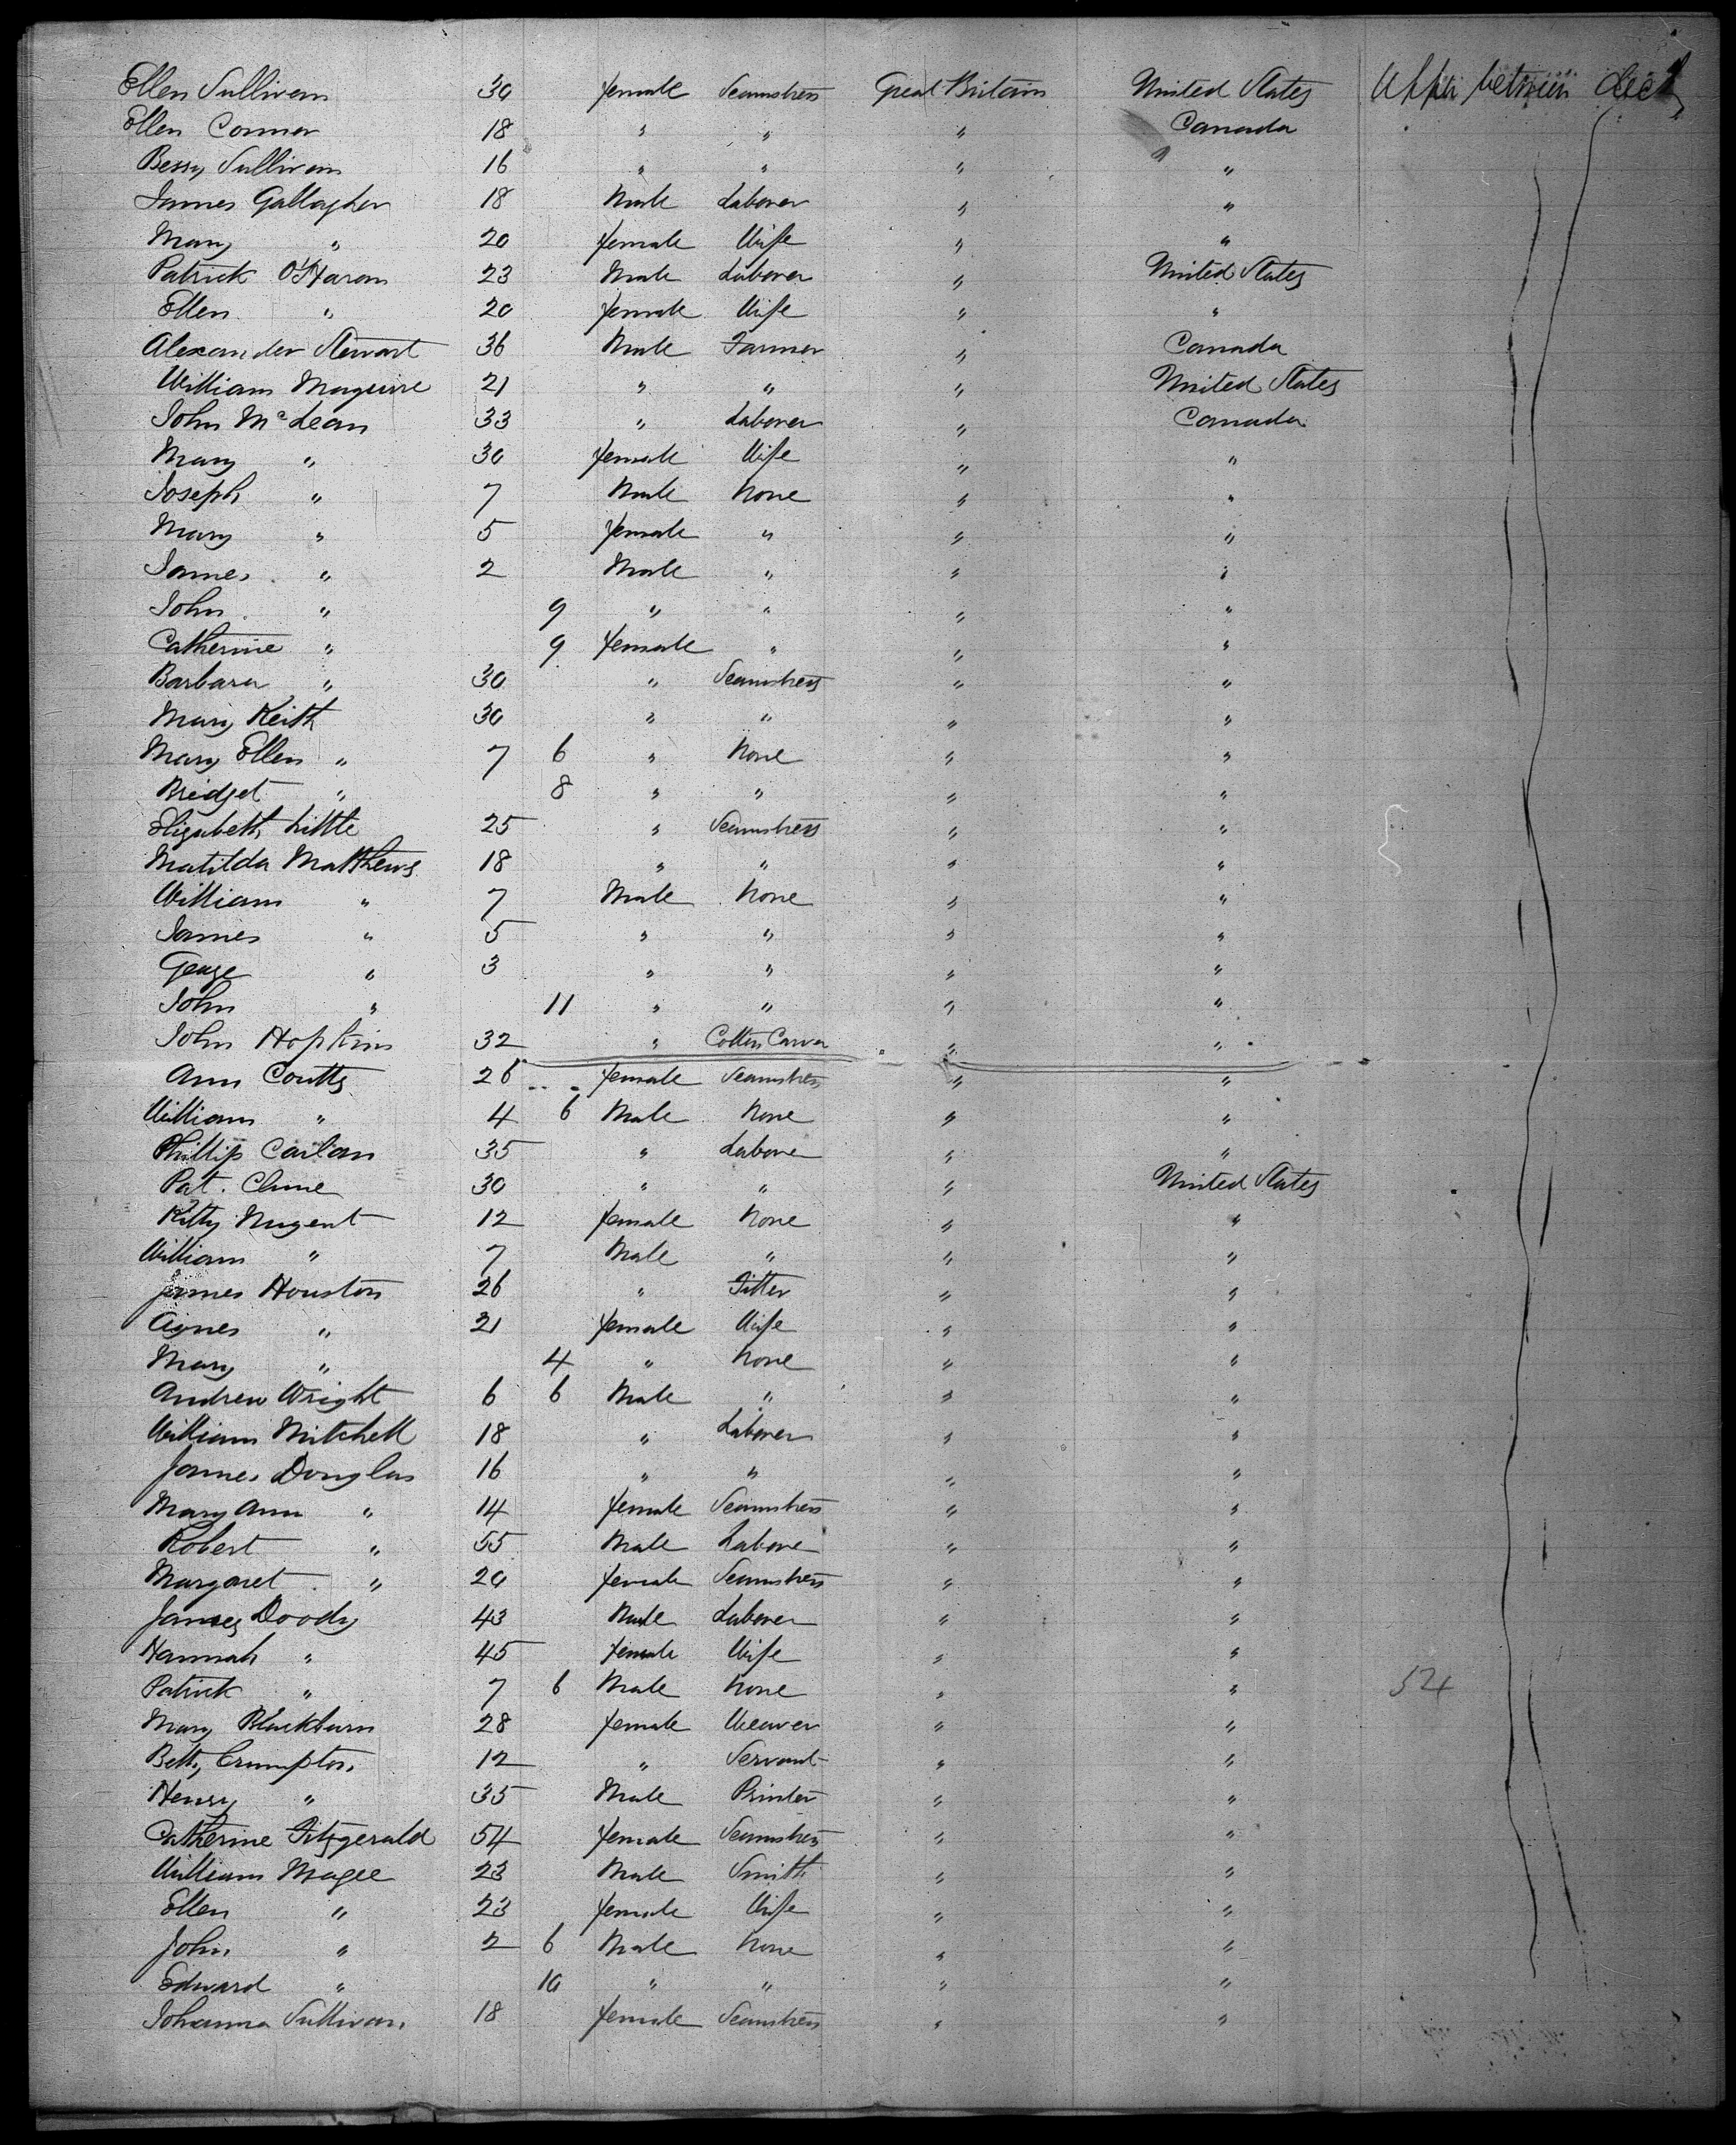 Ellen Sullivan 30 female Seamstress Great Britain United States Upper between deck
Ellen Connor 18 " " " Canada
Bessy Sullivan 16 " " " "
James Gallagher 18 Male Laborer " "
Mary " 20 female Wife " "
Patrick O'Haran 23 Male Laborer " United States
Ellen " 20 female Wife " "
Alexander Stewart 36 Male Farmer " Canada
William Maguire 21 " " " United States
John McLean 33 " Laborer " Canada
Mary " 30 female Wife " "
Joseph " 7 Male None " "
Mary " 5 female " " "
James " 2 Male " " "
John " 9 " " " "
Catherine " 9 female " " "
Barbara " 30 " Seamstress " "
Mary Keith 30 " " " "
Mary Ellen " 7 6 " None " "
Bridget " 8 " " " "
Elizabeth Little 25 " Seamstress " "
Matilda Matthews 18 " " " "
William " 7 Male None " "
James " 5 " " " "
George " 3 " " " "
John " 11 " " " "
John Hopkins 32 " Cotton Carver " "
Ann Coutts 26 female Seamstress " "
William " 4 6 Male None " "
Phillip Carlan 35 " Labore " "
Pat. Clune 30 " " " United States
Kitty Nugent 12 female None " "
William " 7 Male " " "
James Houston 26 " Fitter " "
Agnes " 21 female Wife " "
Mary " 4 " None " "
Andrew Wright 6 6 Male " " "
William Mitchell 18 " Laborer " "
James Douglas 16 " " " "
Mary Ann " 14 female Seamstress " "
Robert " 55 Male Labore " "
Margaret " 20 female Seamstress " "
James Doody 43 Male Laborer " "
Hannah " 45 female Wife " "
Patrick " 7 6 Male None " " 54
Mary Blackburn 28 female Weaver " "
Betty Crumpton 12 " Servant " "
Henry " 35 Male Printer " "
Catherine Fitzgerald 54 female Seamstress " "
William Magee 23 Male Smith " "
Ellen " 23 female Wife " "
John " 2 6 Male None " "
Edward " 10 " " " "
Johanna Sullivan 18 female Seamstress " "